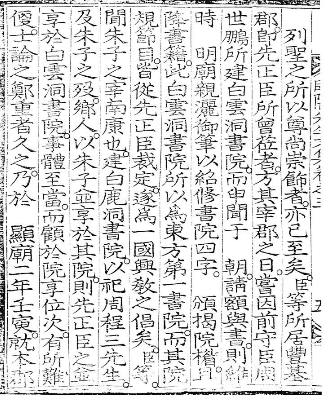 列聖之所以尊尚崇飾者亦已至矣臣等所居豐基
郡卽先正臣所曾莅者方其宰郡之日嘗因前守臣周
世鵬所建白雲洞書院而申聞于 朝請額與書則維
時 明廟親灑御筆以紹修書院四字 頒揭院楣
降書籍此白雲洞書院所以爲東方第一書院而其院
規節目皆從先正臣裁定遂爲一國興教之倡矣臣等
聞朱子之宰南康也建白鹿洞書院以祀周程三先生
及朱子之歿鄕人以朱子並享於其院則先正臣之並
享於白雲洞書院事體至當而顧於院享位次有所難
便士論之鄭重者久之乃於 顯廟二年壬寅就本郡